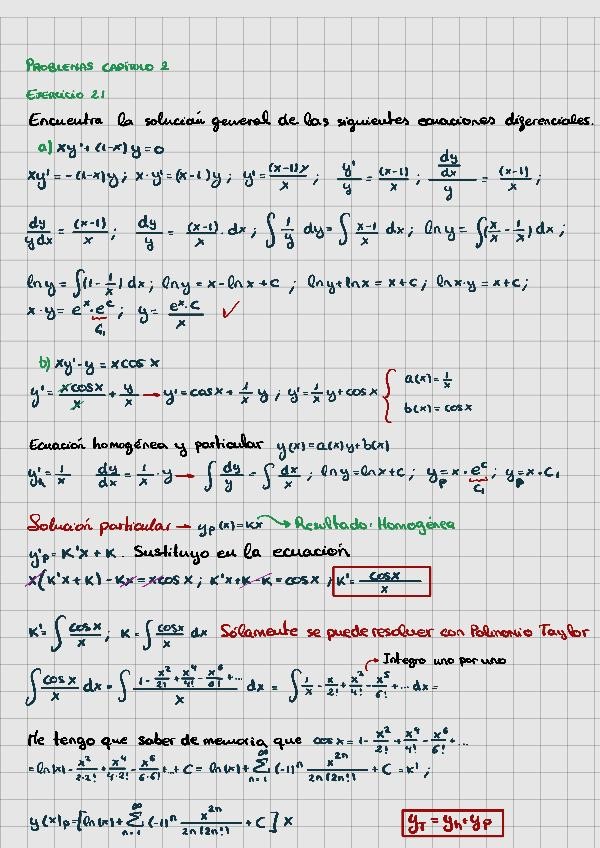 PROBLEMAS CAPÍTULO 2
EJERCICIO 2.1
Encuentra la solución general de las siguientes ecuaciones diferenciales.
a) xy'+(1-x)y=0
xy'=-(1-x)y; x·y'=(x-1)y; y'=\frac{(x-1)y}{x}; \frac{y'}{y}=\frac{(x-1)}{x}; \frac{\frac{dy}{dx}}{y}=\frac{(x-1)}{x};
\frac{dy}{ydx}=\frac{(x-1)}{x}; \frac{dy}{y}=\frac{(x-1)}{x}·dx; ∫\frac{1}{y}dy=∫\frac{x-1}{x}dx; lny=∫(\frac{x}{x}-\frac{1}{x})dx;
lny=∫(1-\frac{1}{x})dx; lny=x-lnx+c; lny+lnx=x+c; lnx·y=x+c;
x·y=e^x·e^c; y=\frac{e^x·C}{x} ✓
C₁
b) xy'-y=xcosx
y'=\frac{xcosx}{x}+\frac{y}{x} → y'=cosx+\frac{1}{x}y; y'=\frac{1}{x}y+cosx { a(x)=\frac{1}{x}
b(x)=cosx
Ecuación homogénea y particular y(x)=a(x)y+b(x)
y'_h=\frac{1}{x} \frac{dy}{dx}=\frac{1}{x}·y → ∫\frac{dy}{y}=∫\frac{dx}{x}; lny=lnx+c; y_p=x·e^c; y_p=x·C₁
C₁
Solución particular → y_p(x)=Kx → Resultado Homogénea
y'_p=K'x+K. Sustituyo en la ecuación
x(K'x+K)-Kx=xcosx; K'x+K-K=cosx; K'=\frac{cosx}{x}
K'=∫\frac{cosx}{x}; K=∫\frac{cosx}{x}dx Sólamente se puede resolver con Polinomio Taylor
Integro uno por uno
∫\frac{cosx}{x}dx=∫\frac{1-\frac{x^2}{2!}+\frac{x^4}{4!}-\frac{x^6}{6!}+...}{x}dx=∫\frac{1}{x}-\frac{x}{2!}+\frac{x^3}{4!}-\frac{x^5}{6!}+...dx=
Me tengo que saber de memoria que cosx=1-\frac{x^2}{2!}+\frac{x^4}{4!}-\frac{x^6}{6!}+...
=ln(x)-\frac{x^2}{2·2!}+\frac{x^4}{4·2!}-\frac{x^6}{6·6!}+..+C=ln(x)+\sum_{n=1}^{∞}(-1)^n\frac{x^{2n}}{2n(2n!)}+C=K';
y(x)_p=[ln(x)+\sum_{n=1}^{∞}(-1)^n\frac{x^{2n}}{2n(2n!)}+C]x
y_T=y_h+y_p